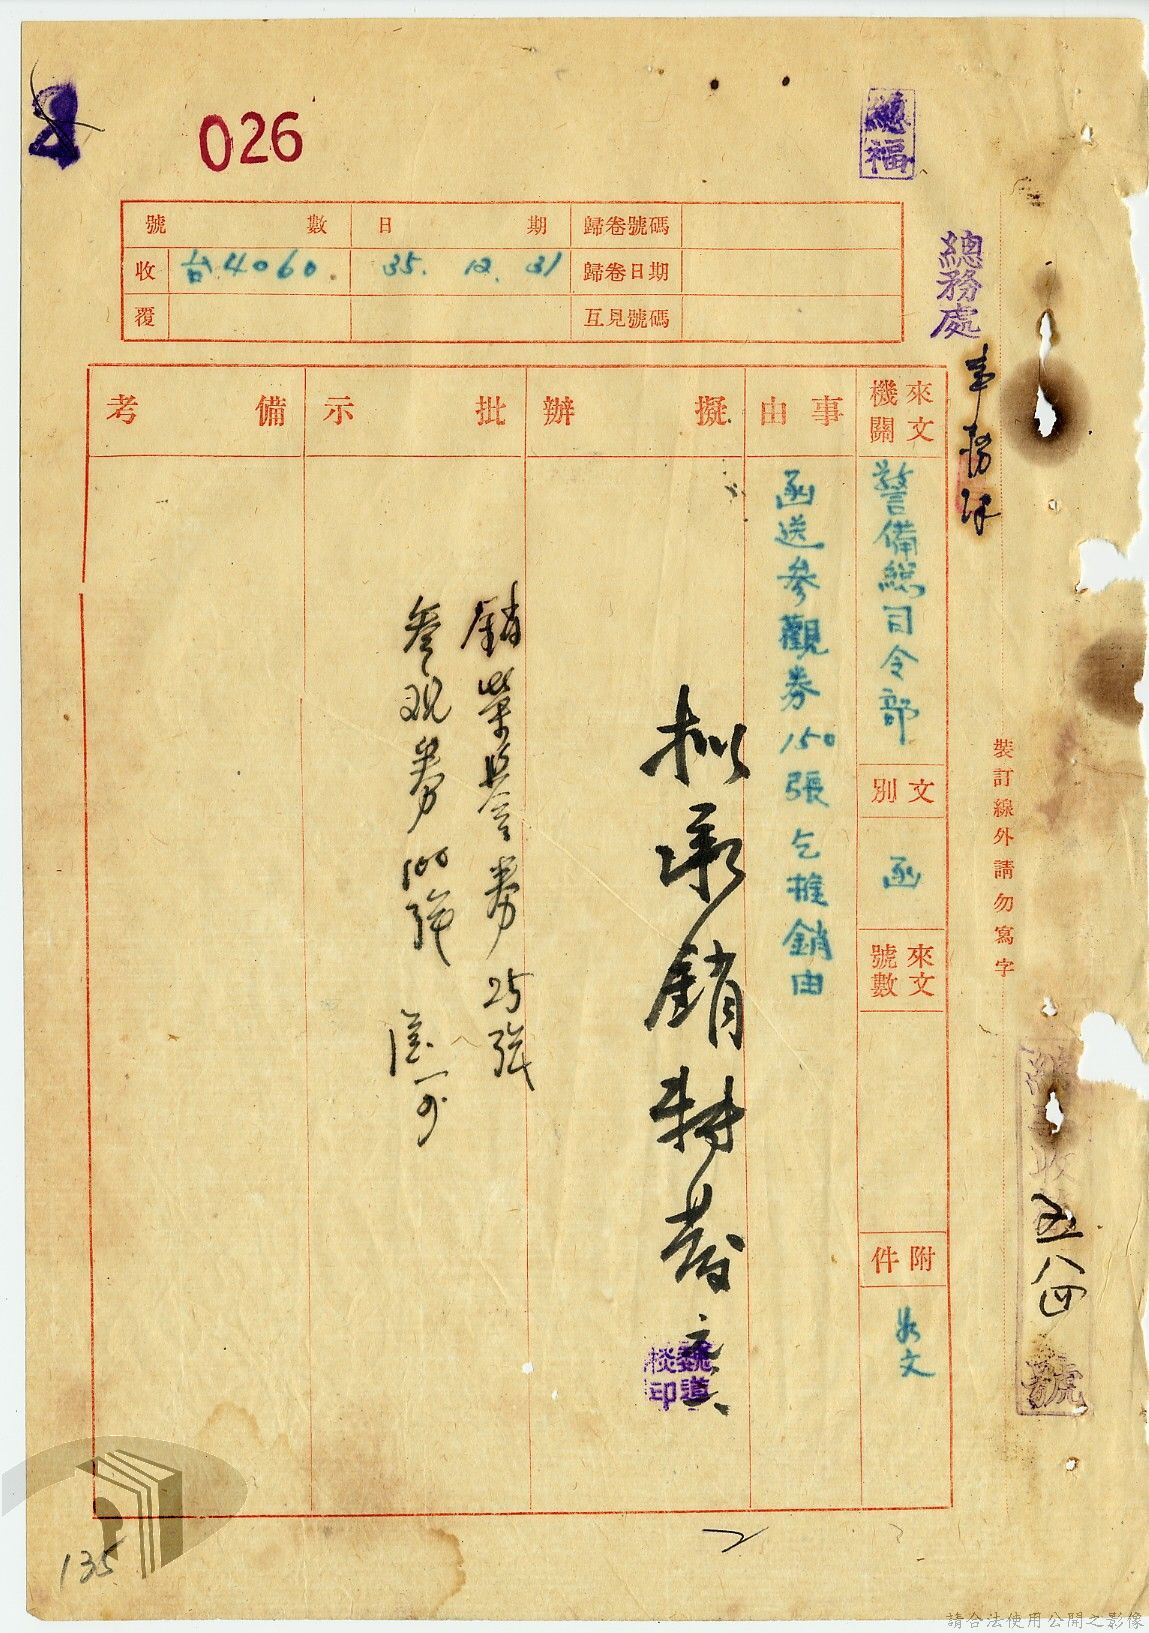 026
總福
號數
日期
歸卷號碼
收
台4060.
35. 12. 31
歸卷日期
覆
互見號碼
總務處
事務課
來文機關
警備總司令部
文別
函
來文號數
附件
如文
事由
函送參觀券150張乞推銷由
擬辦
拟承銷
魏道
印
批示
銷榮譽券25張
參观券100張
備考
裝訂線外請勿寫字
收
五八四
號
135
請合法使用公開之影像